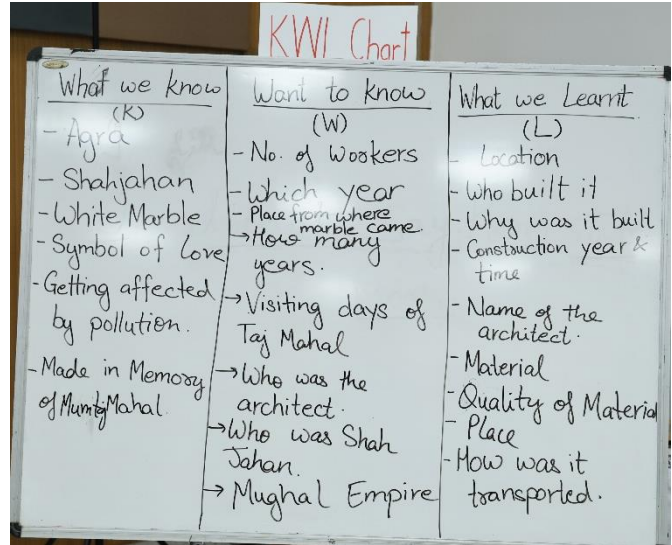 KWL Chart
What we know
(K)
- Agra
- Shahjahan
- White Marble
- Symbol of Love
- Getting affected
by pollution.
- Made in Memory
of Mumtaj Mahal.
Want to know
(W)
- No. of Workers
- Which year
- Place from where
marble came.
→ How many
years.
→ Visiting days of
Taj Mahal
→ Who was the
architect.
→ Who was Shah
Jahan.
→ Mughal Empire
What we Learnt
(L)
- Location
- Who built it
- Why was it built
- Construction year &
time
- Name of the
architect.
- Material
- Quality of Material
- Place
- How was it
transported.